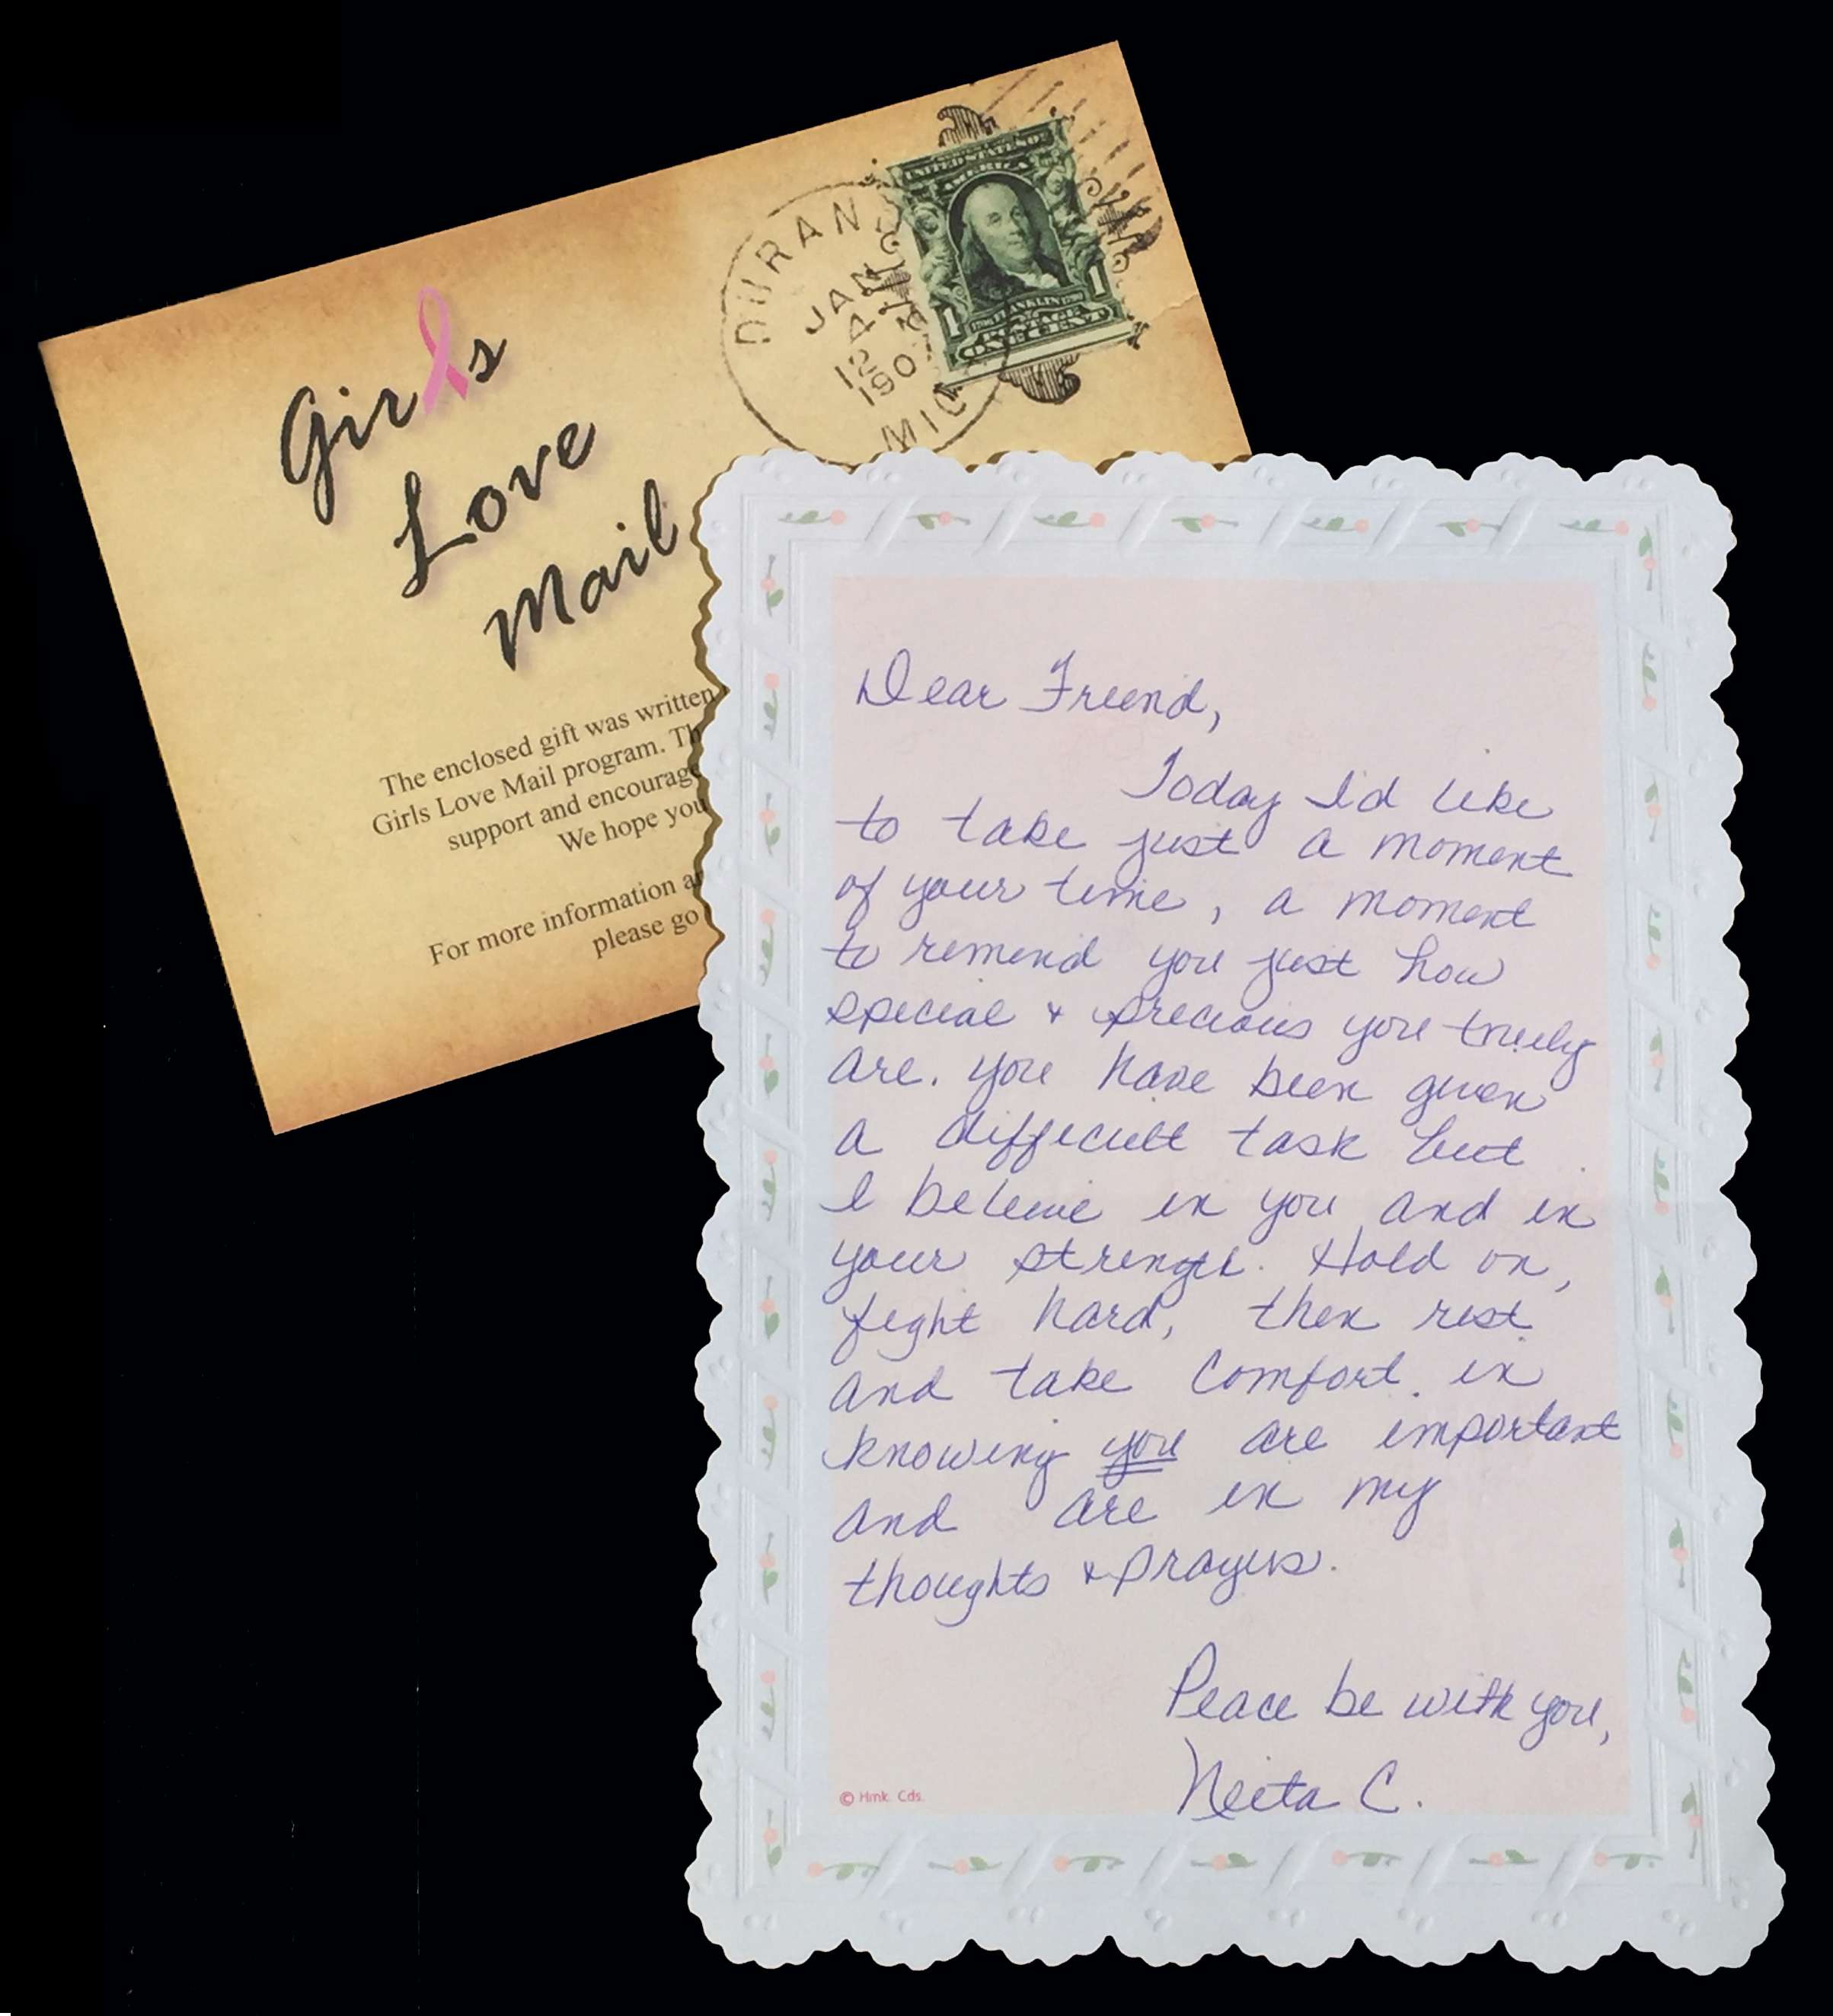 Girls
Love
Mail
DURAN
JAN
4
12
190
MIC
UNITED STATES OF
AMERICA
FRANKLIN
POSTAGE
1 1
ONE CENT
The enclosed gift was written
Girls Love Mail program. Th
support and encourage
We hope you
For more information a
please go
Dear Friend,
Today I'd like
to take just a moment
of your time, a moment
to remind you just how
special & precious you truely
are. You have been given
a difficult task but
I believe in you and in
your strength. Hold on,
fight hard, then rest
and take comfort in
knowing you are important
and are in my
thoughts & prayers.
Peace be with you,
Neita C.
© Hmk. Cds.